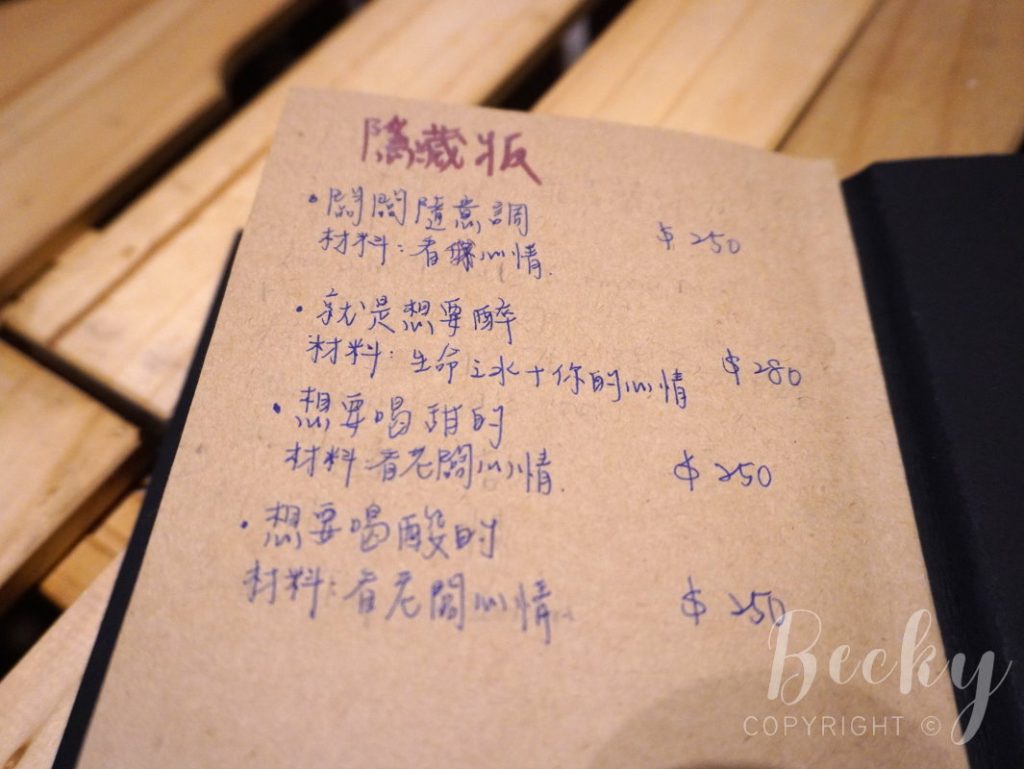 隱藏版
・闆闆隨意調
材料：看 心情. $250
・就是想要醉
材料：生命之水+你的心情 $280
・想要喝甜的
材料：看老闆心情. $250
・想要喝酸的
材料：看老闆心情. $250
Becky
COPYRIGHT ©